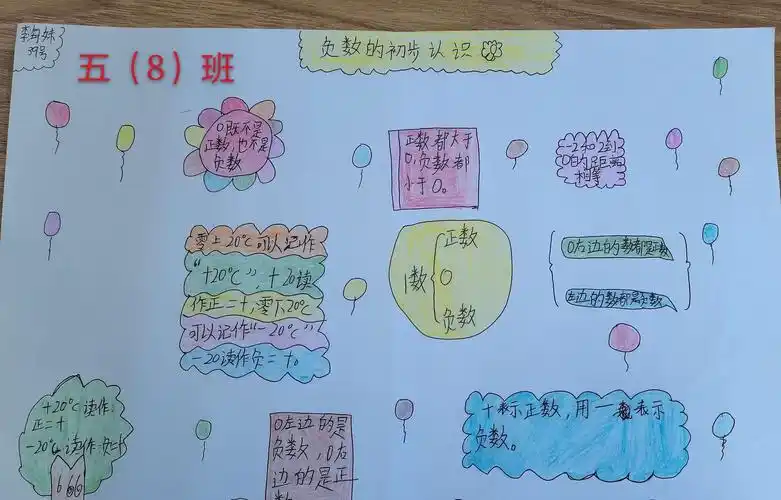 39号
五（8）班
负数的初步认识
0既不是
正数，也不是
负数
正数都大于
0，负数都
小于0。
-2和2到
0的距离
相等
零上20℃可以记作
“+20℃”，+20读
作正二十，零下20℃
可以记作“-20℃”
-20读作负二十。
数
正数
0
负数
0右边的数都是正数
左边的数都是负数
+20℃读作：
正二十
-20℃读作：负二十
666
0左边的是
负数，0右
边的是正
数
+表示正数，用一表示
负数。